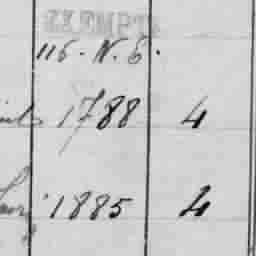 EXEMPT
116. N. E.
1788 4
1885 4